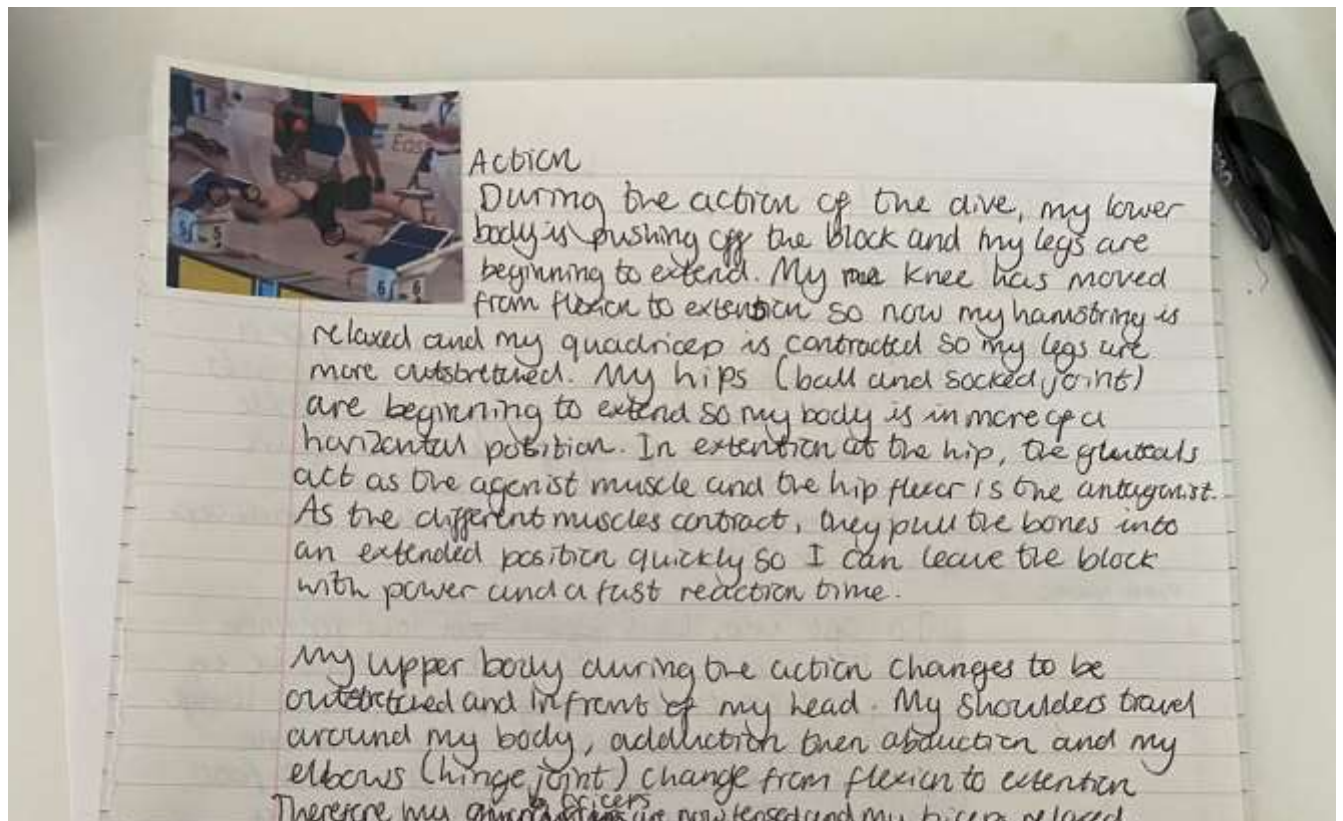 Action
During the action of the dive, my lower
body is pushing off the block and my legs are
beginning to extend. My knee has moved
from flexion to extention so now my hamstring is
relaxed and my quadricep is contracted so my legs are
more outstretched. My hips (ball and socked joint)
are beginning to extend so my body is in more of a
horizontal position. In extention at the hip, the gluteals
act as the agonist muscle and the hip flexor is the antagonist.
As the different muscles contract, they pull the bones into
an extended position quickly so I can leave the block
with power and a fast reaction time.
My upper body during the action changes to be
outstretched and infront of my head. My shoulders travel
around my body, adduction then abduction and my
elbows (hinge joint) change from flexion to extention
Therefore my tricers are now tensed and my biceps relaxed
5
6